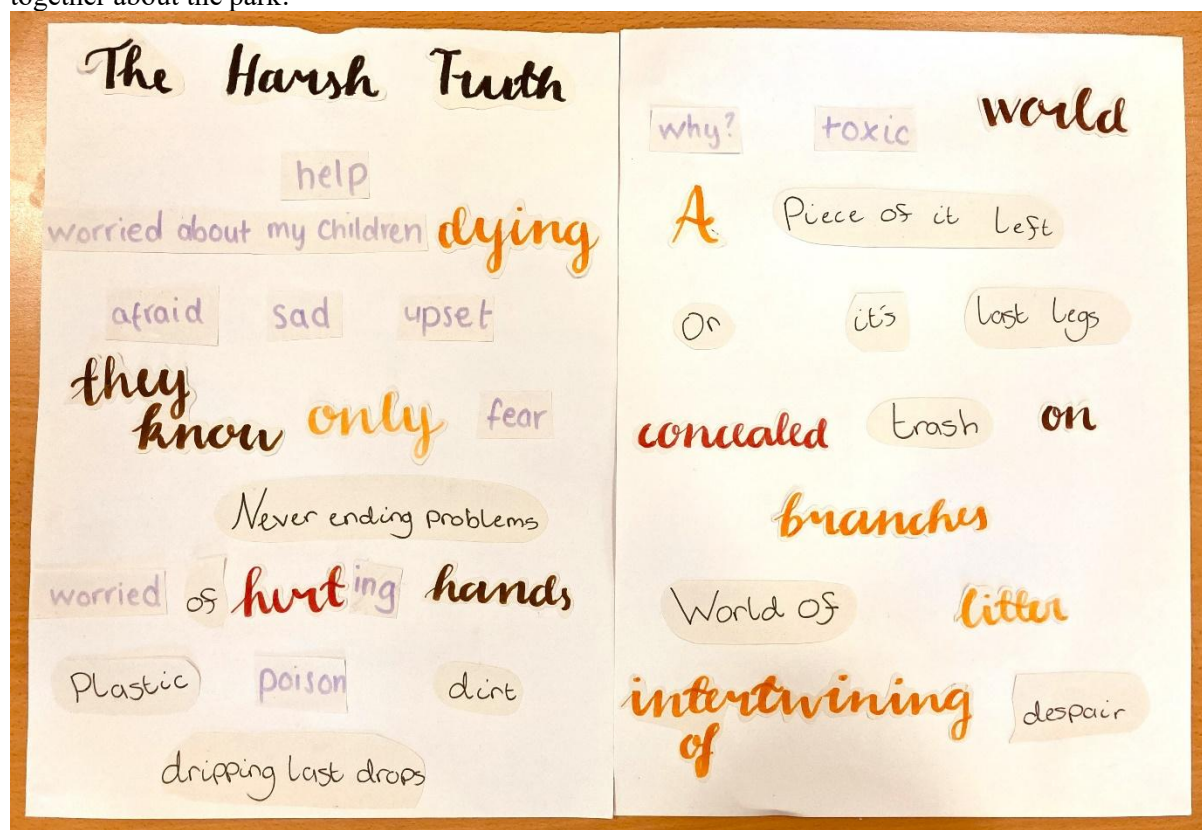 together about the park.
The Harsh Truth
help
worried about my children dying
afraid sad upset
they
know only fear
Never ending problems
worried of hurting hands
Plastic poison dirt
dripping last drops
why? toxic world
A Piece of it Left
On it's last legs
concealed trash on
branches
World of litter
intertwining
of despair